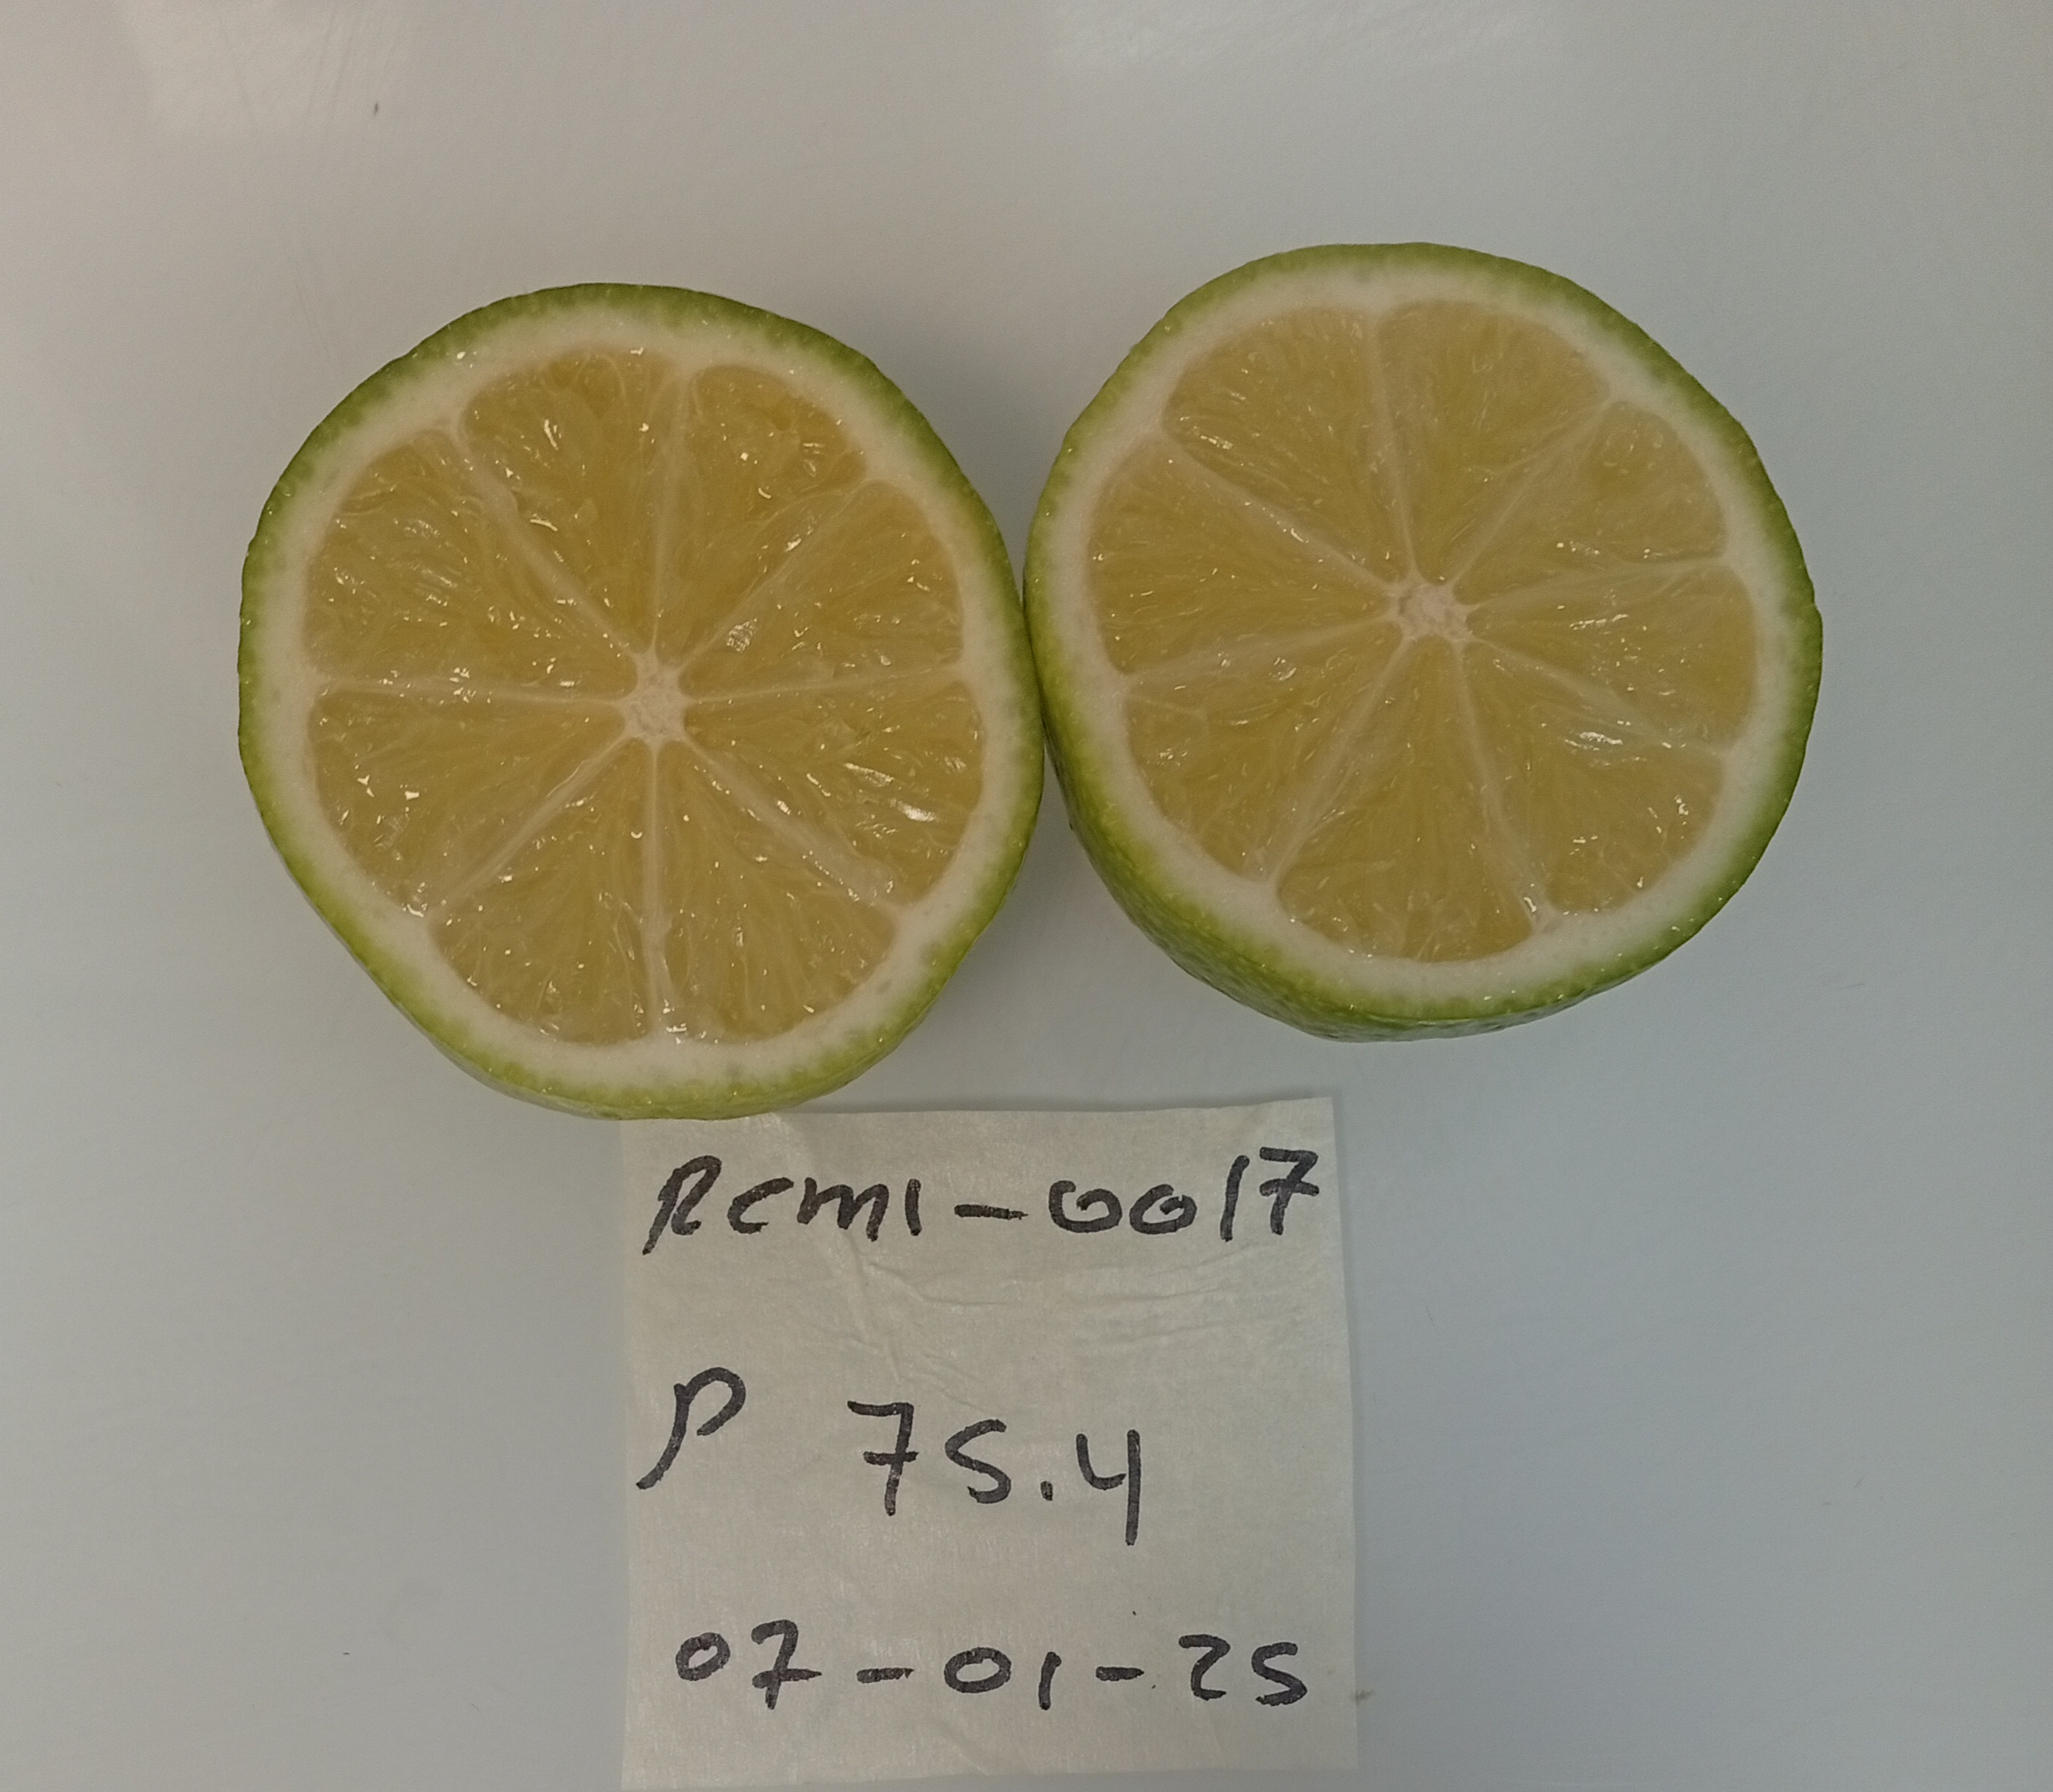 RCM1-0017
P 75.4
07-01-25